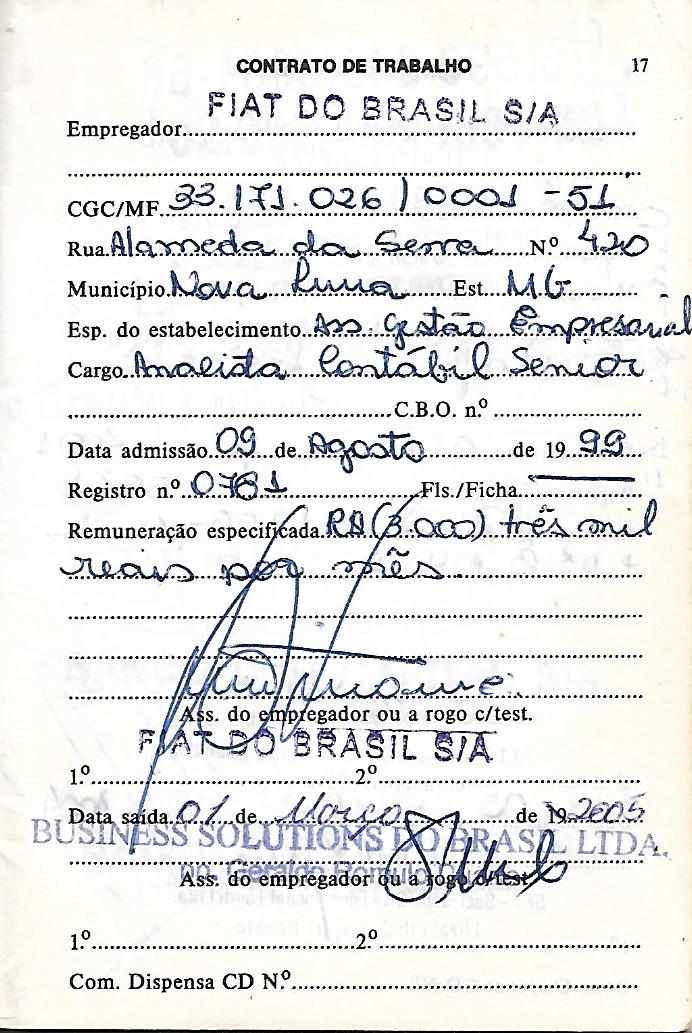 CONTRATO DE TRABALHO 17
FIAT DO BRASIL S/A
Empregador
CGC/MF 33.171.026/0001-51
Rua Alameda da Serra Nº 420
Município Nova Lima Est. MG
Esp. do estabelecimento Ass. Gestão Empresarial
Cargo Analista Contábil Senior
C.B.O. nº
Data admissão 09 de Agosto de 1999
Registro n.º 0781 Fls./Ficha
Remuneração especificada (3.000) três mil
reais por mês
Ass. do empregador ou a rogo c/test.
FIAT DO BRASIL S/A
1.º 2º
Data saída 01 de Março de 19 2005
BUSINESS SOLUTIONS DO BRASIL LTDA.
pp. Geraldo Romulo
Ass. do empregador ou a rogo c/test
1.º 2º
Com. Dispensa CD N.º